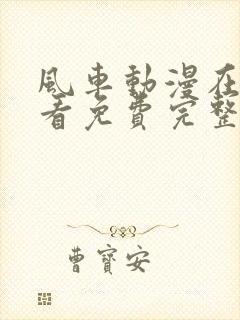 風車動漫在
看免費完整
曹寶安